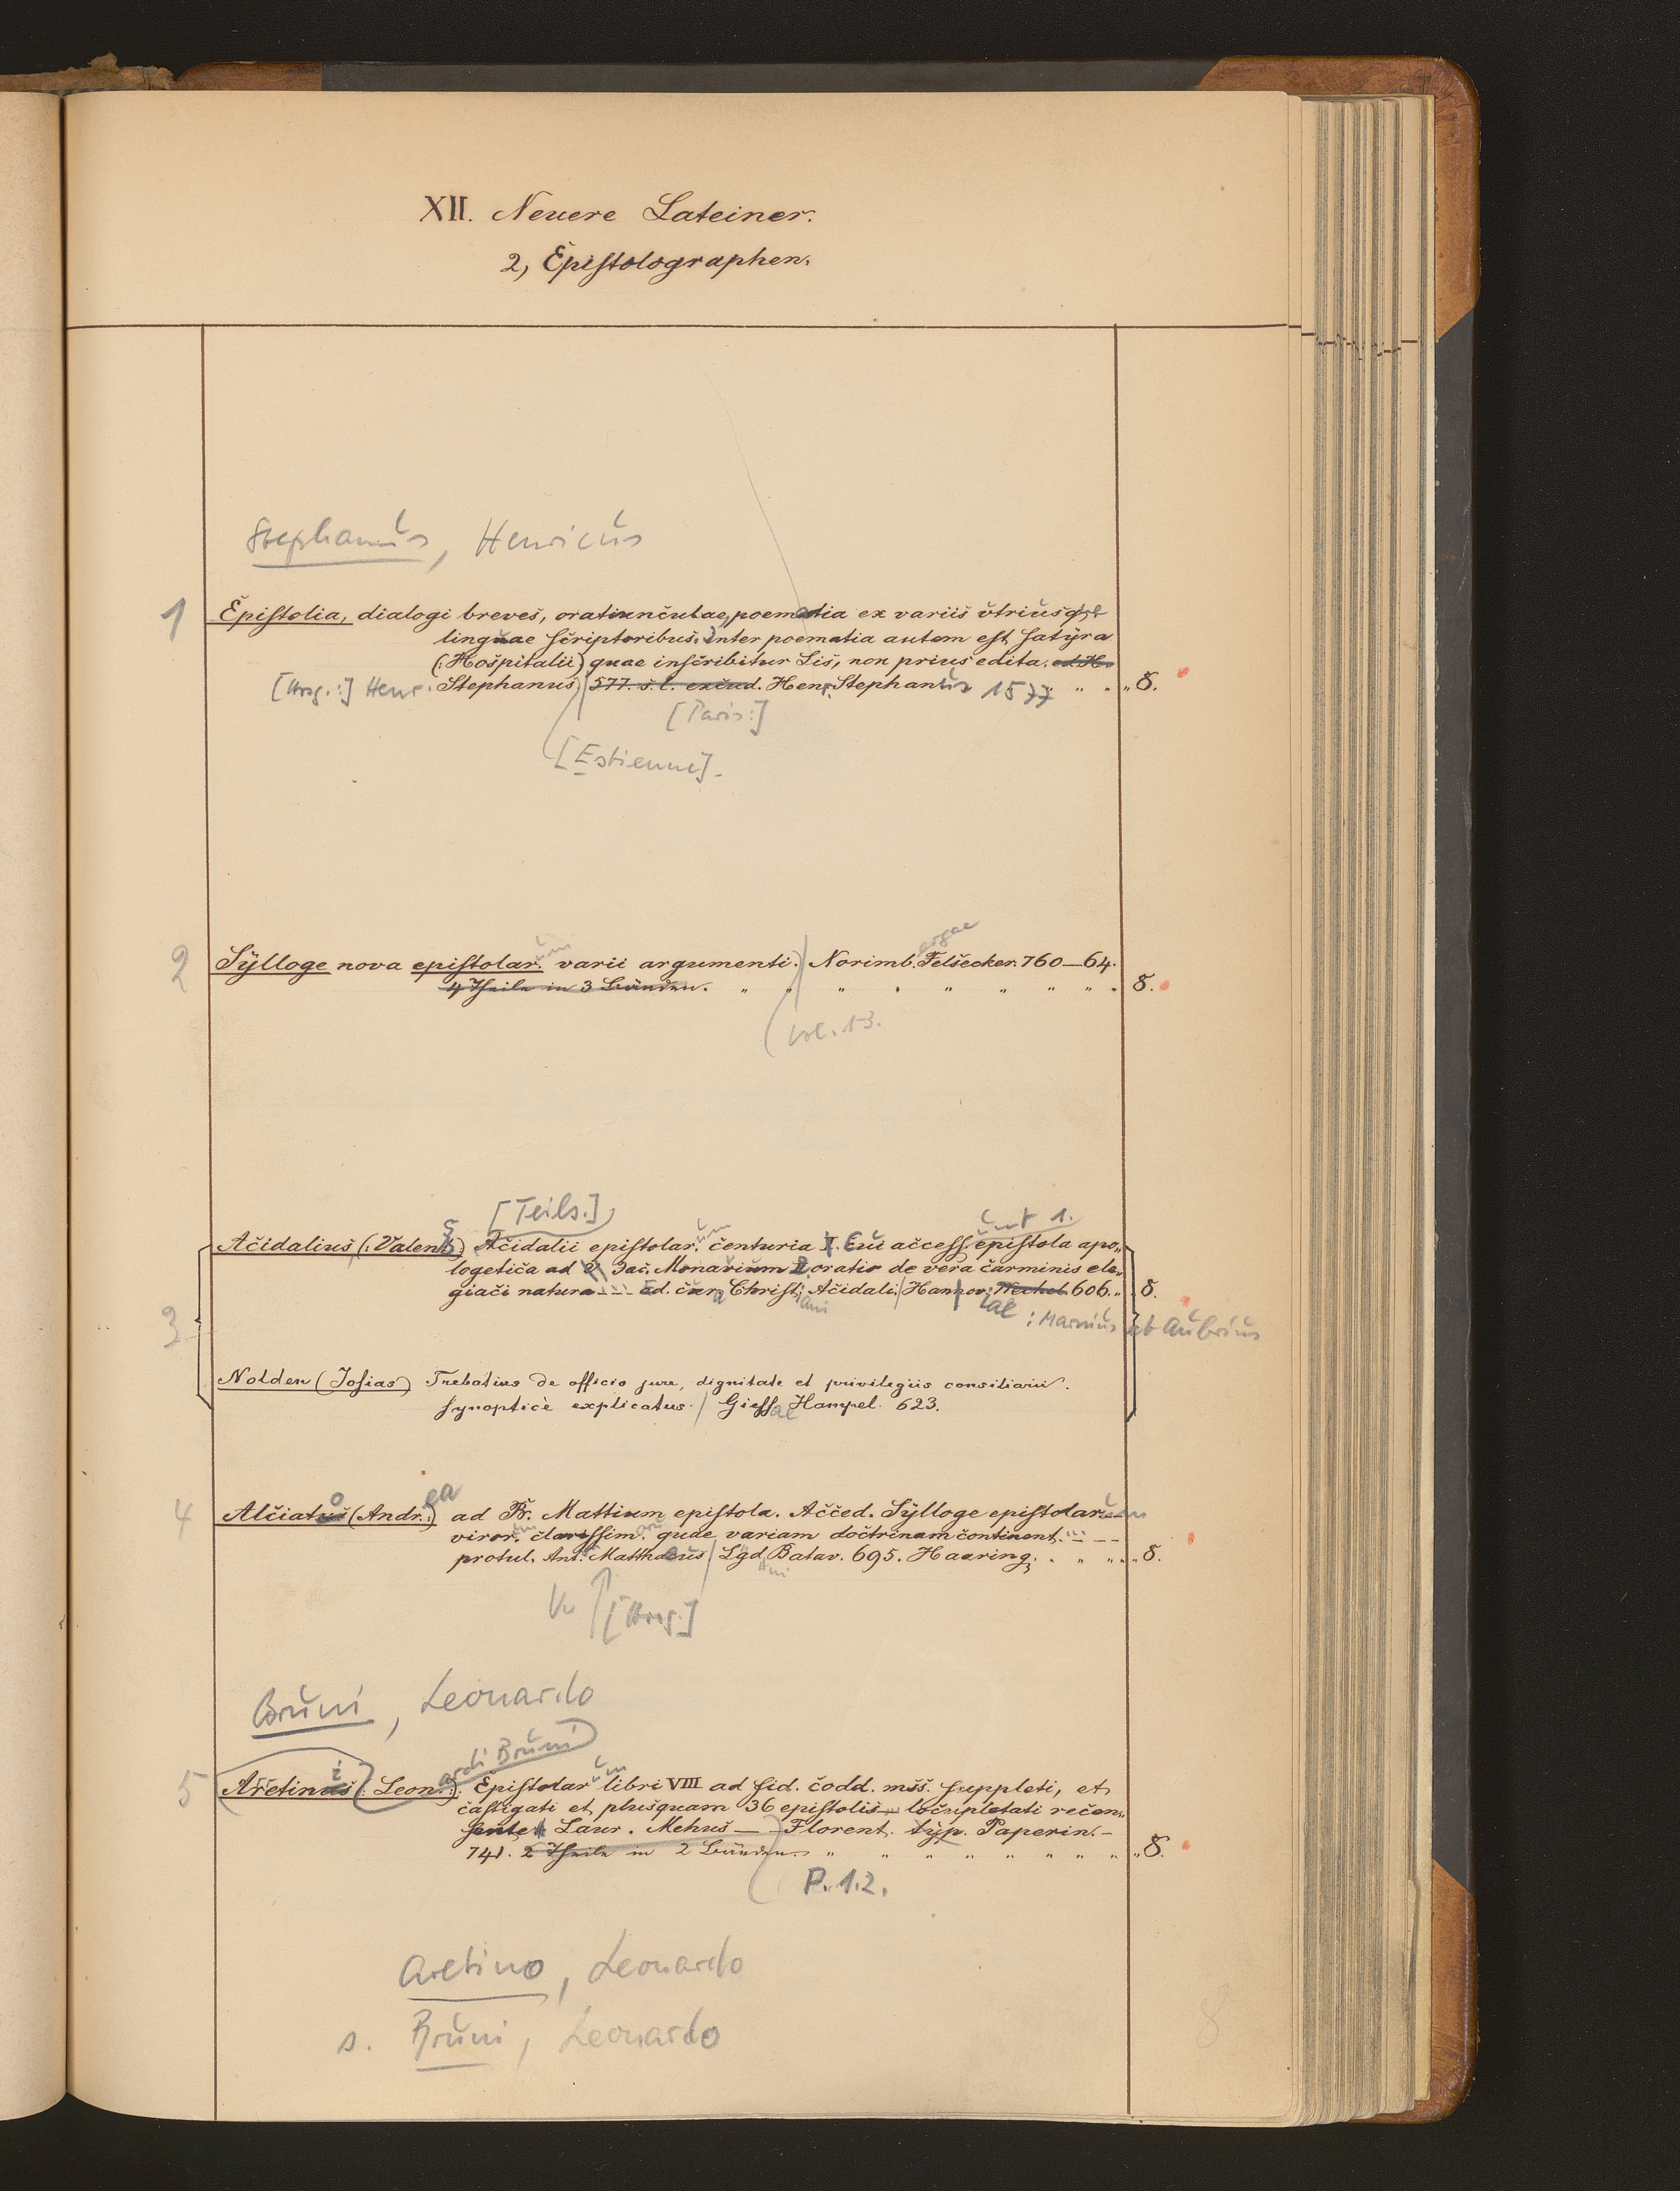 XII. Neuere Lateiner.
2, Epistolographen.
Stephanus, Henricus
1 Epistolia, dialogi breves, oratiunculae, poematia ex variis utriusque
linguae scriptoribus. Inter poematia autem est satyra
(: Hospitalii) quae inscribitur Lis, non prius edita. ed. H.
[Hrsg.:] Henr. Stephanus) 577. s. l. excud. Henr. Stephanus 1577 „ „ „ 8.
[Paris:]
[Estienne].
2 Sylloge nova epistolar.um varii argumenti. Norimb.ergae Felsecker. 760–64.
4 Theile in 3 Bänden. „ „ „ „ „ „ „ „ „ 8.
Vol. 1-3.
[Teils.] Cent 1.
Acidalius (: Valens :) Acidalii epistolar.um centuria I. Cui access. epistola apo„
logetica ad Jac. Monavium & oratio de vera carminis ele„
giaci natura --- Ed. cura Christiani Acidali. Hanov. Wechel. 606. „ 8.
iae : Marnius et Aubrius
3
Nolden (Josias) Trebatius de officio jure, dignitate et privilegiis consiliarii.
synoptice explicatus. Giessae Hampel. 623.
4 Alciatus (Andr.ea) ad B. Mattium epistola. Acced. Sylloge epistolarum
viror.um clarissim.orum quae variam doctrinam continent. ---
protul. Ant. Matthaeus Lgd.uni Batav. 695. Haaring. „ „ „ „ 8.
[Hrsg.]
Bruni, Leonardo
ardi Bruni
5 Aretinus (: Leon. :) Epistolarum libri VIII ad fid. codd. mss. suppleti, et
castigati et plusquam 36 epistolis locupletati recen„
sente Laur. Mehus — Florent. typ. Paperin. –
741. 2 Theile in 2 Bänden. „ „ „ „ „ „ „ „ 8.
P. 1.2.
Aretino, Leonardo
s. Bruni, Leonardo
8